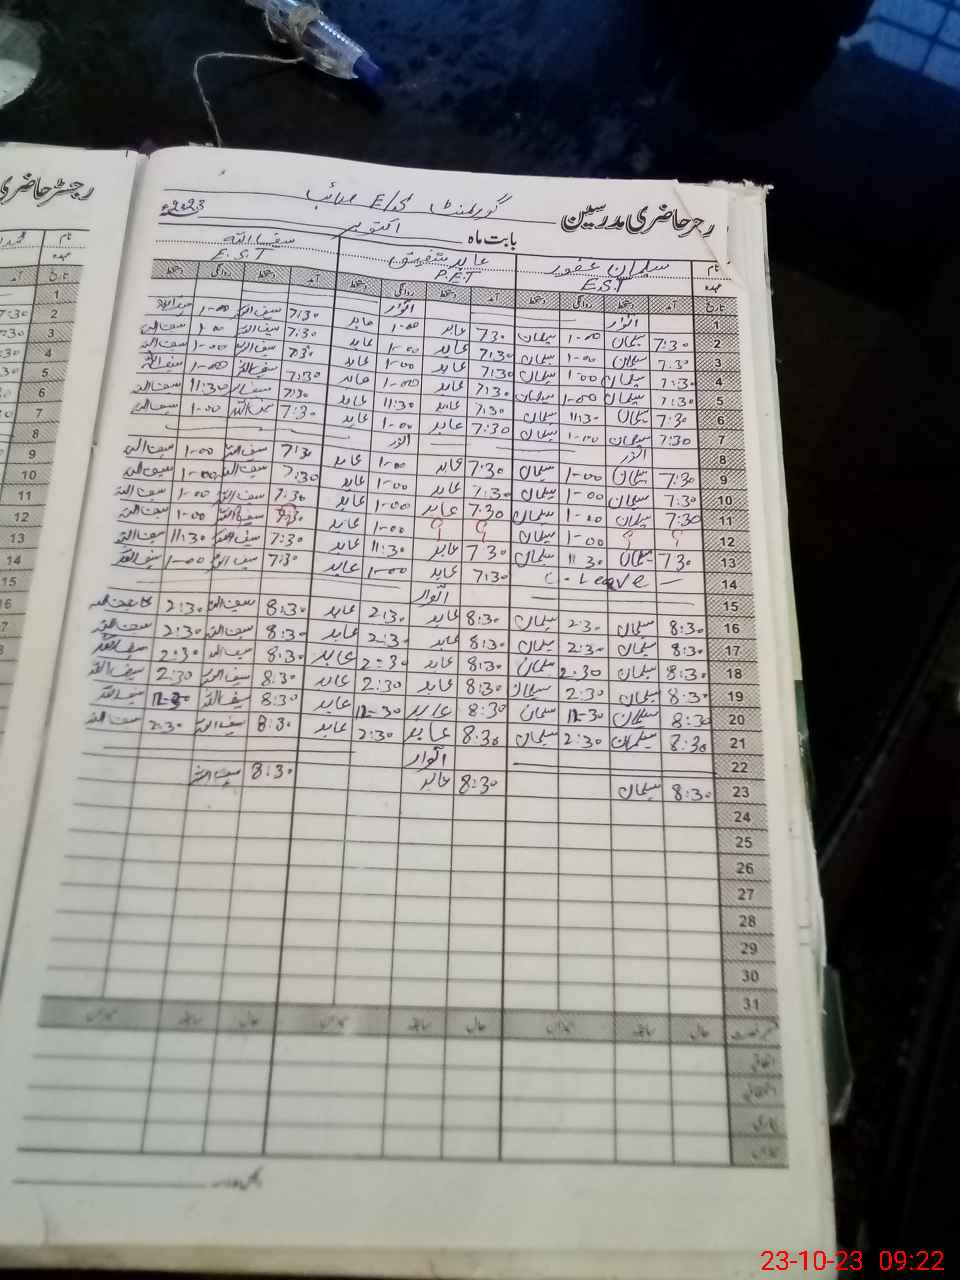 رجسٹر حاضری
رجسٹر حاضری مدرسین گورنمنٹ E/S
بابت ماہ اکتوبر 2023ء
نام سلیمان غفور عابد شفیق سیف اللہ
عہدہ E.S.T P.E.T E.S.T
تاریخ آمد دستخط روانگی دستخط آمد دستخط روانگی دستخط آمد دستخط روانگی دستخط
1 اتوار اتوار
2 7:30 سلیمان 1-00 سلیمان 7:30 عابد 1-00 عابد 7:30 سیف اللہ 1-00 سیف اللہ
3 7:30 سلیمان 1-00 سلیمان 7:30 عابد 1-00 عابد 7:30 سیف اللہ 1-00 سیف اللہ
4 7:30 سلیمان 1-00 سلیمان 7:30 عابد 1-00 عابد 7:30 سیف اللہ 1-00 سیف اللہ
5 7:30 سلیمان 1-00 سلیمان 7:30 عابد 1-00 عابد 7:30 سیف اللہ 1-00 سیف اللہ
6 7:30 سلیمان 11:30 سلیمان 7:30 عابد 11:30 عابد 7:30 سیف اللہ 11:30 سیف اللہ
7 7:30 سلیمان 1-00 سلیمان 7:30 عابد 1-00 عابد 7:30 سیف اللہ 1-00 سیف اللہ
8 اتوار اتوار
9 7:30 سلیمان 1-00 سلیمان 7:30 عابد 1-00 عابد 7:30 سیف اللہ 1-00 سیف اللہ
10 7:30 سلیمان 1-00 سلیمان 7:30 عابد 1-00 عابد 7:30 سیف اللہ 1-00 سیف اللہ
11 7:30 سلیمان 1-00 سلیمان 7:30 عابد 1-00 عابد 7:30 سیف اللہ 1-00 سیف اللہ
12 ? ? 1-00 سلیمان ? ? 1-00 عابد 7:30 سیف اللہ 1-00 سیف اللہ
13 7:30 سلیمان 11:30 سلیمان 7:30 عابد 11:30 عابد 7:30 سیف اللہ 11:30 سیف اللہ
14 — Leave 7:30 عابد 1-00 عابد 7:30 سیف اللہ 1-00 سیف اللہ
15 اتوار
16 8:30 سلیمان 2:30 سلیمان 8:30 عابد 2:30 عابد 8:30 سیف اللہ 2:30 سیف اللہ
17 8:30 سلیمان 2:30 سلیمان 8:30 عابد 2:30 عابد 8:30 سیف اللہ 2:30 سیف اللہ
18 8:30 سلیمان 2:30 سلیمان 8:30 عابد 2:30 عابد 8:30 سیف اللہ 2:30 سیف اللہ
19 8:30 سلیمان 2:30 سلیمان 8:30 عابد 2:30 عابد 8:30 سیف اللہ 2:30 سیف اللہ
20 8:30 سلیمان 12-30 سلیمان 8:30 عابد 12-30 عابد 8:30 سیف اللہ 12-30 سیف اللہ
21 8:30 سلیمان 2:30 سلیمان 8:30 عابد 2:30 عابد 8:30 سیف اللہ 2:30 سیف اللہ
22 اتوار
23 8:30 سلیمان 8:30 عابد 8:30 سیف اللہ
24
25
26
27
28
29
30
31
حال سابقہ میزان حال سابقہ میزان حال سابقہ میزان
اتفاقی
استحقاقی
بیماری
میزان
نام
عہدہ
تاریخ
1
2 7:30
3
4
5
6
7
8
9
10
11
12
13
14
15
16
23-10-23 09:22